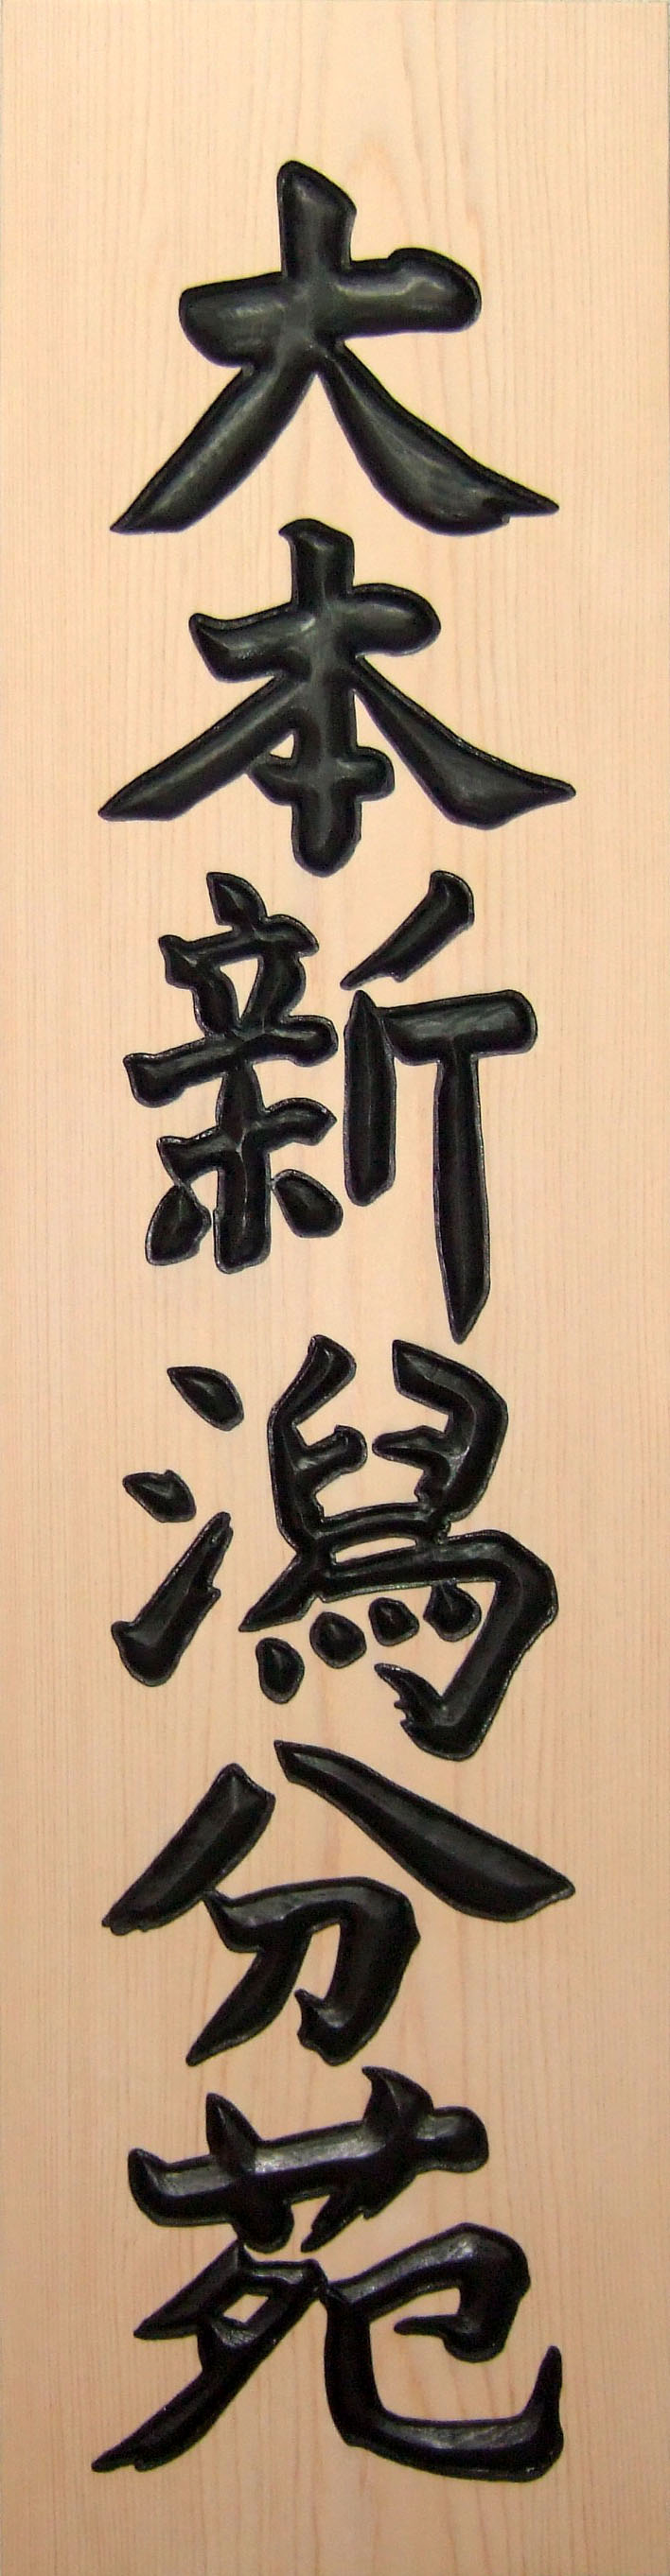 大本新潟分苑